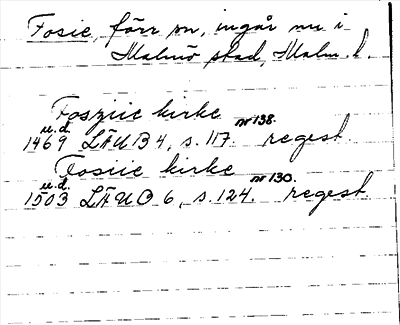 Fosie, förr sn, ingår nu i
Malmö stad, Malm. l.
Fosziie kirke nr 138.
u.d.
1469 LÄUB 4, s. 117. regest.
Fosiie kirke nr 130.
u.d.
1503 LÄUB 6, s. 124. regest.